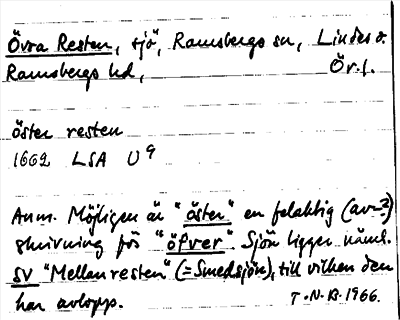 Övra Resten, sjö, Ramsbergs sn, Lindes o.
Ramsbergs hd, Ör.l.
östen resten
1662 LSA U9
Anm. Möjligen är "östen" en felaktig (av-?)
skrivning för "öfver". Sjön ligger näml.
sv "Mellanresten" (=Smedsjön), till vilken den
har avlopp. T.N.B. 1966.